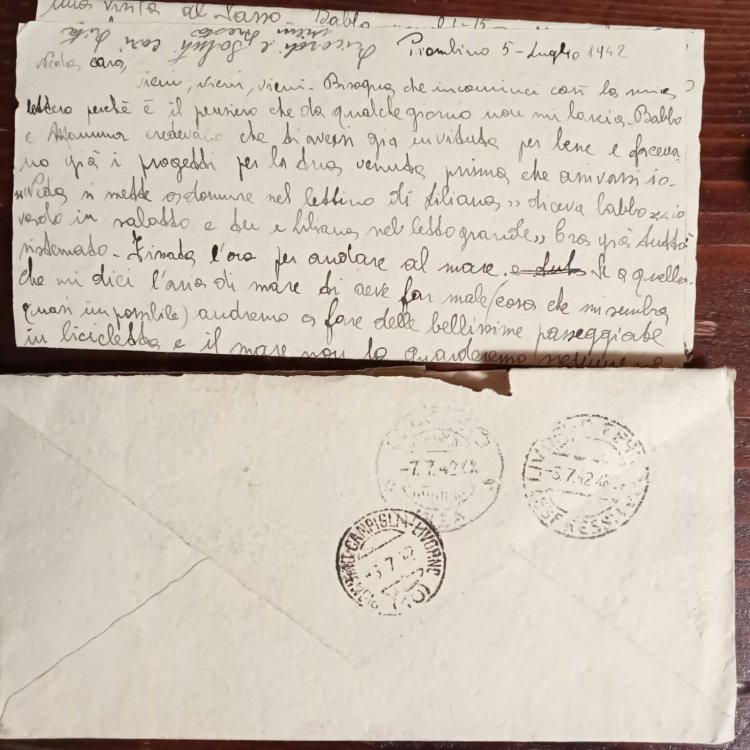 una visita al Sasso Babbo
Ricordi e Saluti cari
Piombino 5-Luglio 1942
cara,
vieni, vieni, vieni - Bisogna che incominci così la mia
lettera perché è il pensiero che da qualche giorno non mi lascia - Babbo
e Mamma credevano che ti avessi già invitata per bene e faceva-
no già i progetti per la tua venuta prima che arrivassi io.
si mette a dormire nel lettino di Liliana,, diceva babbo io
vado in salotto e tu e Liliana nel letto grande,, Era già tutto
sistemato - Fissata l'ora per andare al mare. Se a quello
che mi dici l'aria di mare ti deve far male (cosa che mi sembra
quasi impossibile) andremo a fare delle bellissime passeggiate
in bicicletta e il mare non lo guarderemo
-7.7.42
PISA
LIVORNO
-5.7.42
ESPRESSI
CAMPIGLIA-LIVORNO
-5.7.42